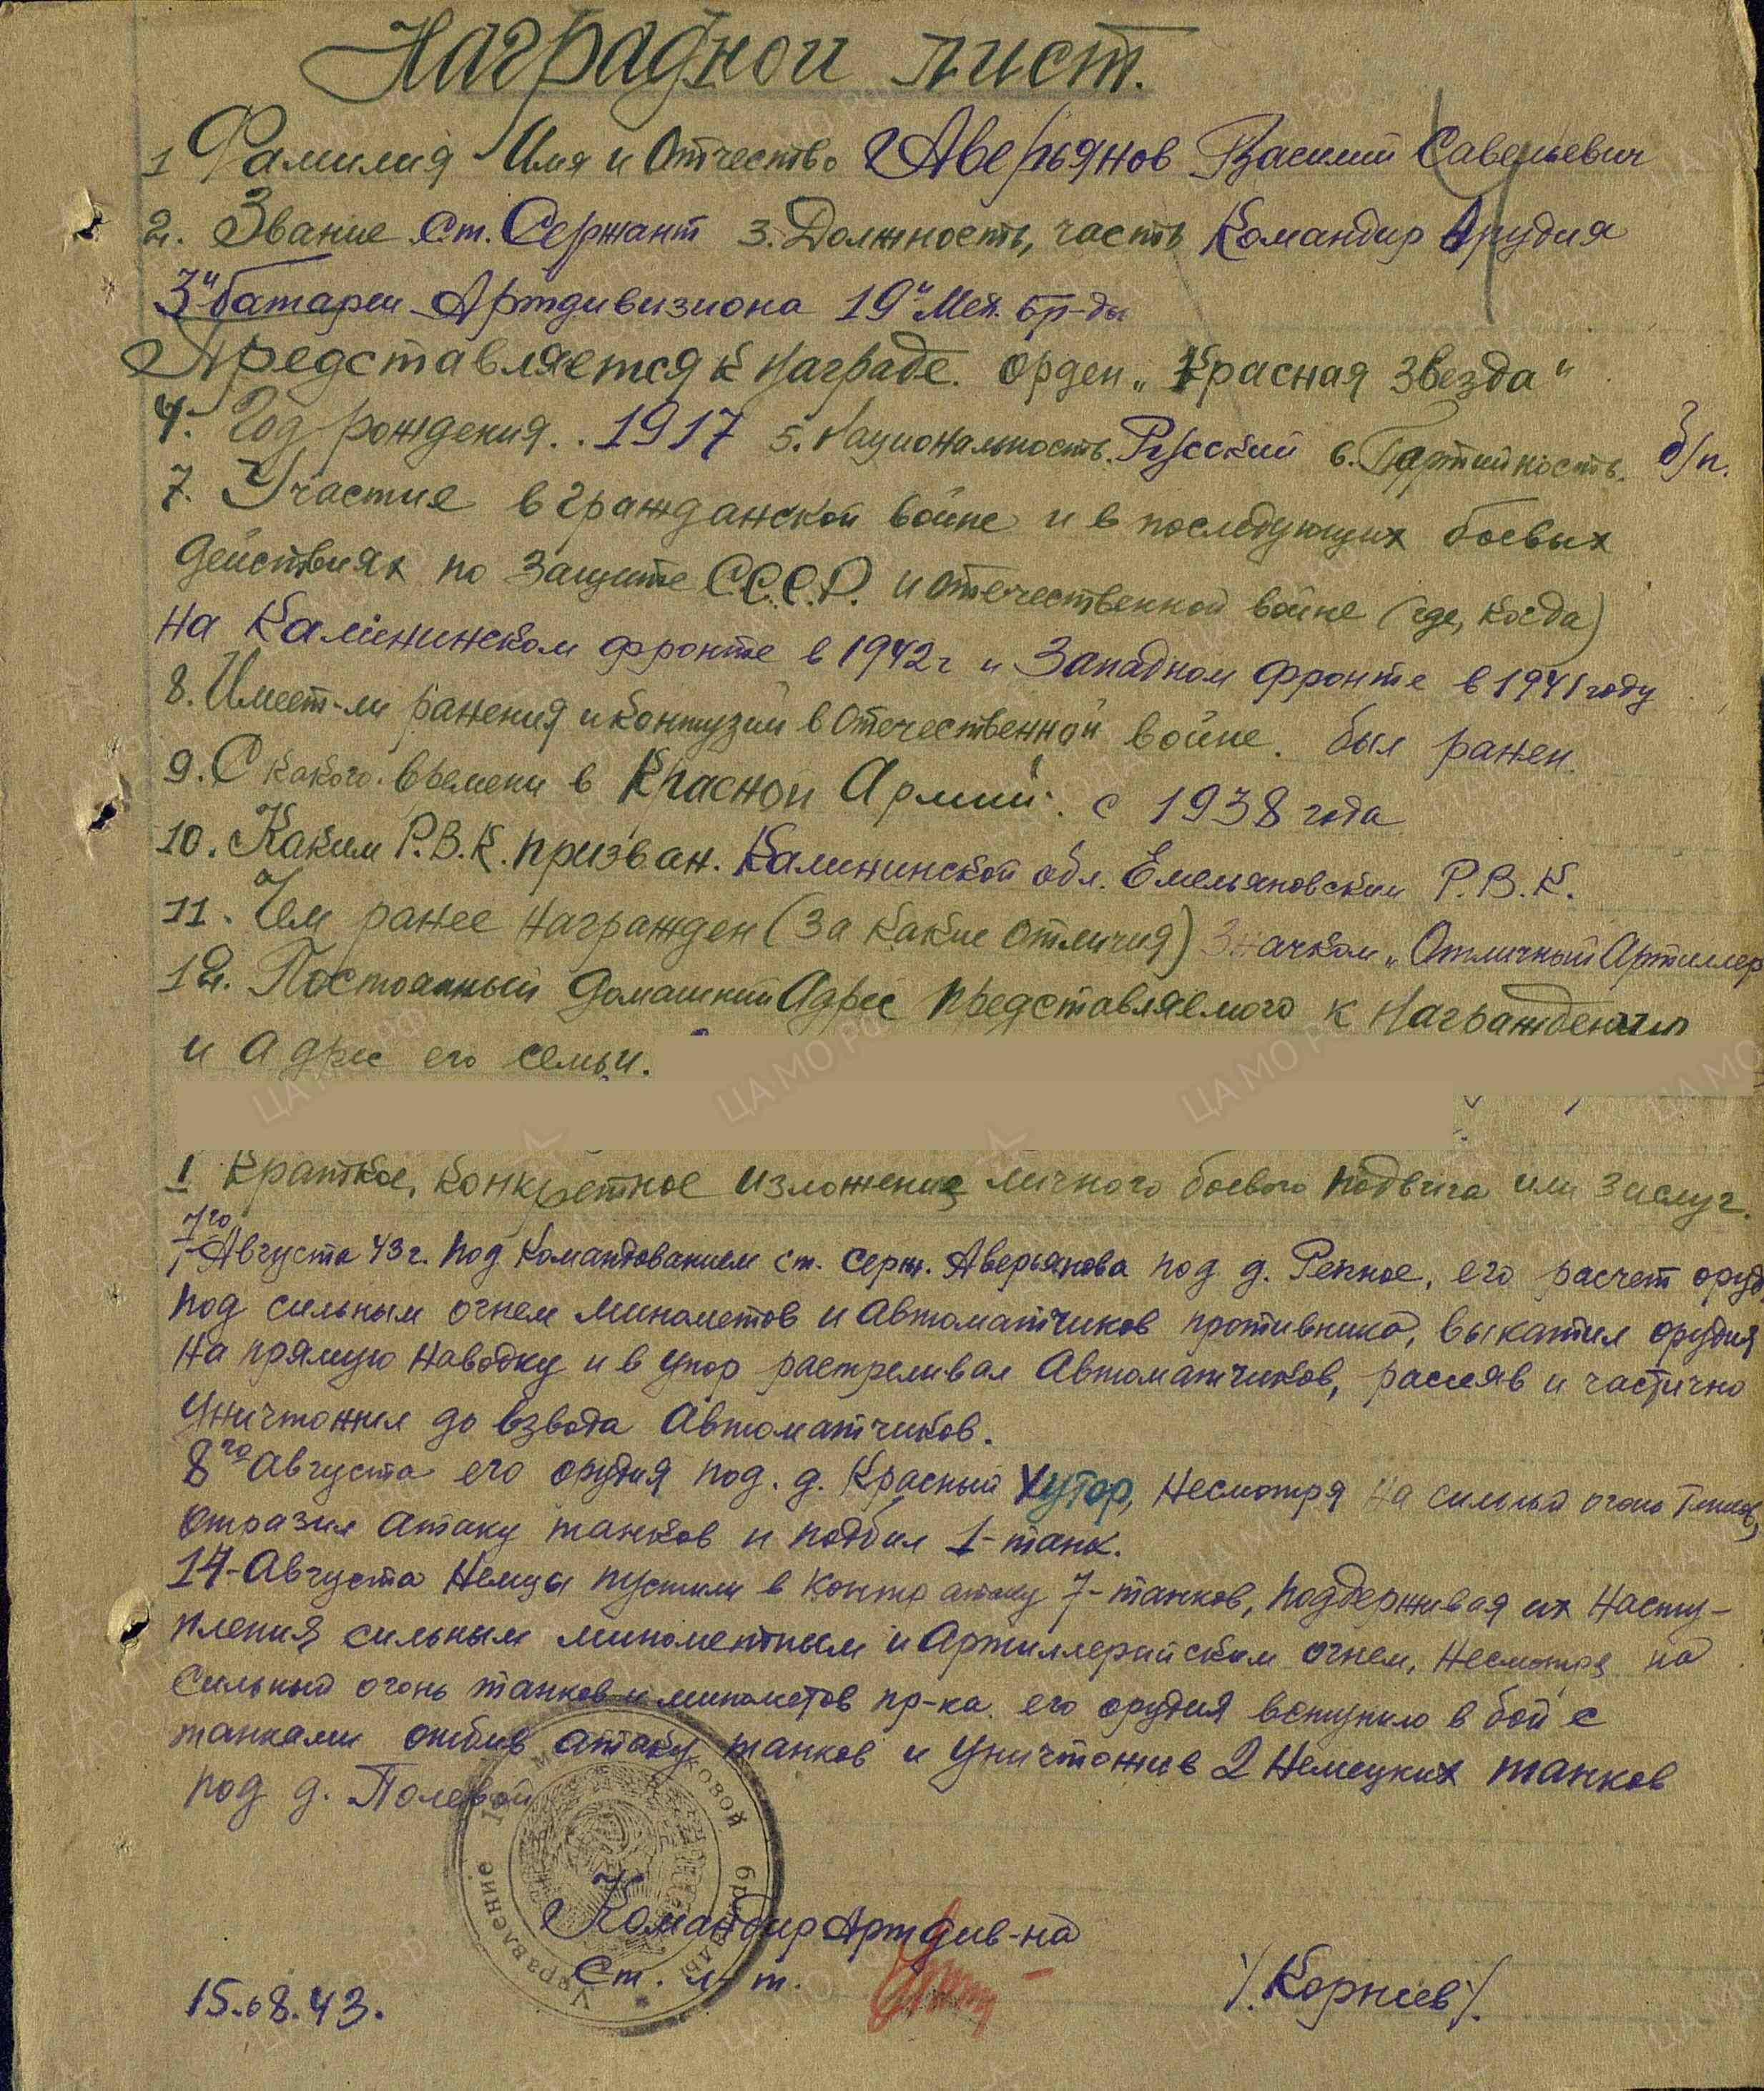 Наградной лист.
1 Фамилия Имя и Отчество Аверьянов Василий Савельевич
2. Звание Ст. Сержант 3. Должность, часть Командир Орудия
3й батареи Артдивизиона 19й Мех. бр-ды
Представляется к награде. орден „Красная Звезда"
4. Год рождения.. 1917 5. Национальность. Русский 6. Партийность. б/п.
7. Участие в гражданской войне и в последующих боевых
действиях по защите С.С.С.Р. и отечественной войне (где, когда)
на Калининском фронте в 1942г и Западном фронте в 1941 году
8. Имеет-ли ранения и контузии в Отечественной войне. был ранен.
9. С какого времени в Красной Армии. с 1938 года
10. Каким Р.В.К. призван. Калининской обл. Емельяновским Р.В.К.
11. Чем ранее награжден (за какие отличия) Значком „Отличный Артиллер
12. Постоянный домашний Адрес представляемого к Награждению
и адрес его семьи.
I Краткое, конкретное изложение личного боевого подвига или заслуг.
7го Августа 43г. под командованием ст. серж. Аверьянова под д. Репное, его расчет оруд
под сильным огнем минометов и автоматчиков противника, выкатил орудия
на прямую наводку и в упор растреливал Автоматчиков, рассеяв и частично
уничтожил до взвода Автоматчиков.
8го Августа его орудия под. д. Красный Хутор, несмотря на сильный огонь танков,
отразил атаку танков и подбил 1-танк.
14-Августа Немцы пустили в контр атаку 7-танков, поддерживая их насту-
пления сильным минометным и Артиллерийским огнем, несмотря на
сильный огонь танков и минометов пр-ка. его орудия вступило в бой с
танками отбив атаку танков и уничтожив 2 Немецких танков
под д. Полевой
Управление механиковой бригады
Командир Артдив-на
Ст. л-т.
/Корнев/.
15.08.43.
ЦА МО РФ